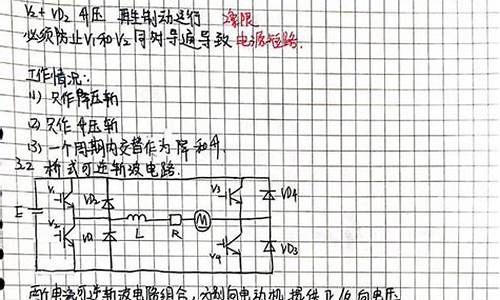 V2+VD2 升压 再生制动运行 2象限
必须防止V1和V2同时导通导致电源短路.
工作情况:
(1) 只作降压斩
(2) 只作升压斩
(3) 一个周期内交替作为降和升.
3.2 桥式可逆斩波电路.
V1 VD2 V3 VD4
E L R M
V2 VD1 V4 VD3
两个电流可逆斩波电路组合,分别向电动机提供正/反向电压